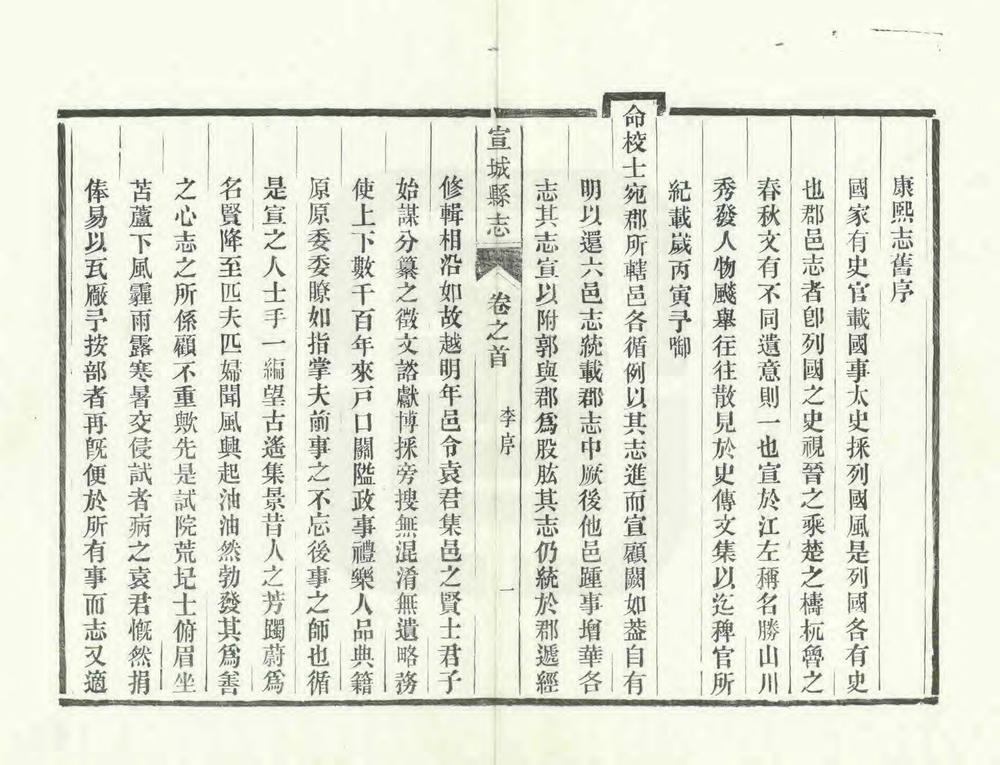 康熙志舊序
國家有史官載國事太史採列國風是列國各有史
也郡邑志者卽列國之史視晉之乘楚之檮杌魯之
春秋文有不同遺意則一也宣於江左稱名勝山川
秀發人物飈舉徃徃散見於史傳文集以迄稗官所
紀載歲丙寅予啣
命校士宛郡所轄邑各循例以其志進而宣顧闕如葢自有
明以還六邑志統載郡志中厥後他邑踵事增華各
志其志宣以附郭與郡爲股肱其志仍統於郡遞經
宣城縣志 卷之首 李序 一
修輯相沿如故越明年邑令袁君集邑之賢士君子
始謀分纂之徵文諮獻博採旁搜無混淆無遺略務
使上下數千百年來戸口關隘政事禮樂人品典籍
原原委委瞭如指掌夫前事之不忘後事之師也循
是宣之人士手一編望古遙集景昔人之芳躅蔚爲
名賢降至匹夫匹婦聞風興起油油然勃發其爲善
之心志之所係顧不重歟先是試院荒圮士俯眉坐
苫蘆下風霾雨露寒暑交侵試者病之袁君慨然捐
俸易以瓦廠予按部者再旣便於所有事而志又適